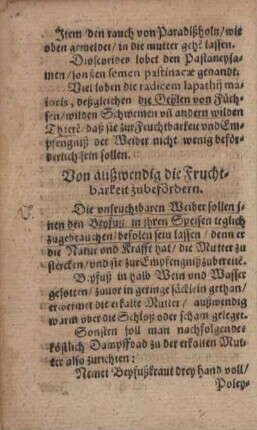 Item / den rauch von Paradißholz / wie
oben gemeldet / in die mutter gehē lassen.
Dioscorides lobet den Pastaneysa-
men / sonsten semen pastinacæ genandt.
Viel loben die radicem lapathij ma-
ioris, deßgleichen die Geylen von Füch-
sen / wilden Schweinen vñ andern wilden
Thierē / daß sie zur Fruchtbarkeit vnd Em-
pfengniß der Weiber nicht wenig beför-
derlich sein sollen.
Von außwendig die Frucht-
barkeit zubefördern.
Die vnfruchtbaren Weiber sollen j-
nen den Beyfuß in ihren Speisen teglich
zugebrauchen / befolen sein lassen / denn er
die Natur vnd Krafft hat / die Mutter zu
stercken / vnd sie zur Empfengniß zubereitē.
Beyfuß in halb Wein vnd Wasser
gesotten / zuvor in geringe säcklein gethan /
erwermet die erkalte Mutter / außwendig
warm ober die Schloß oder scham geleget.
Sonsten soll man nachfolgendes
köstlich Dampffbad zu der erkalten Mut-
ter also zurichten:
Nemet Beyfußkraut drey hand voll /
Poley-